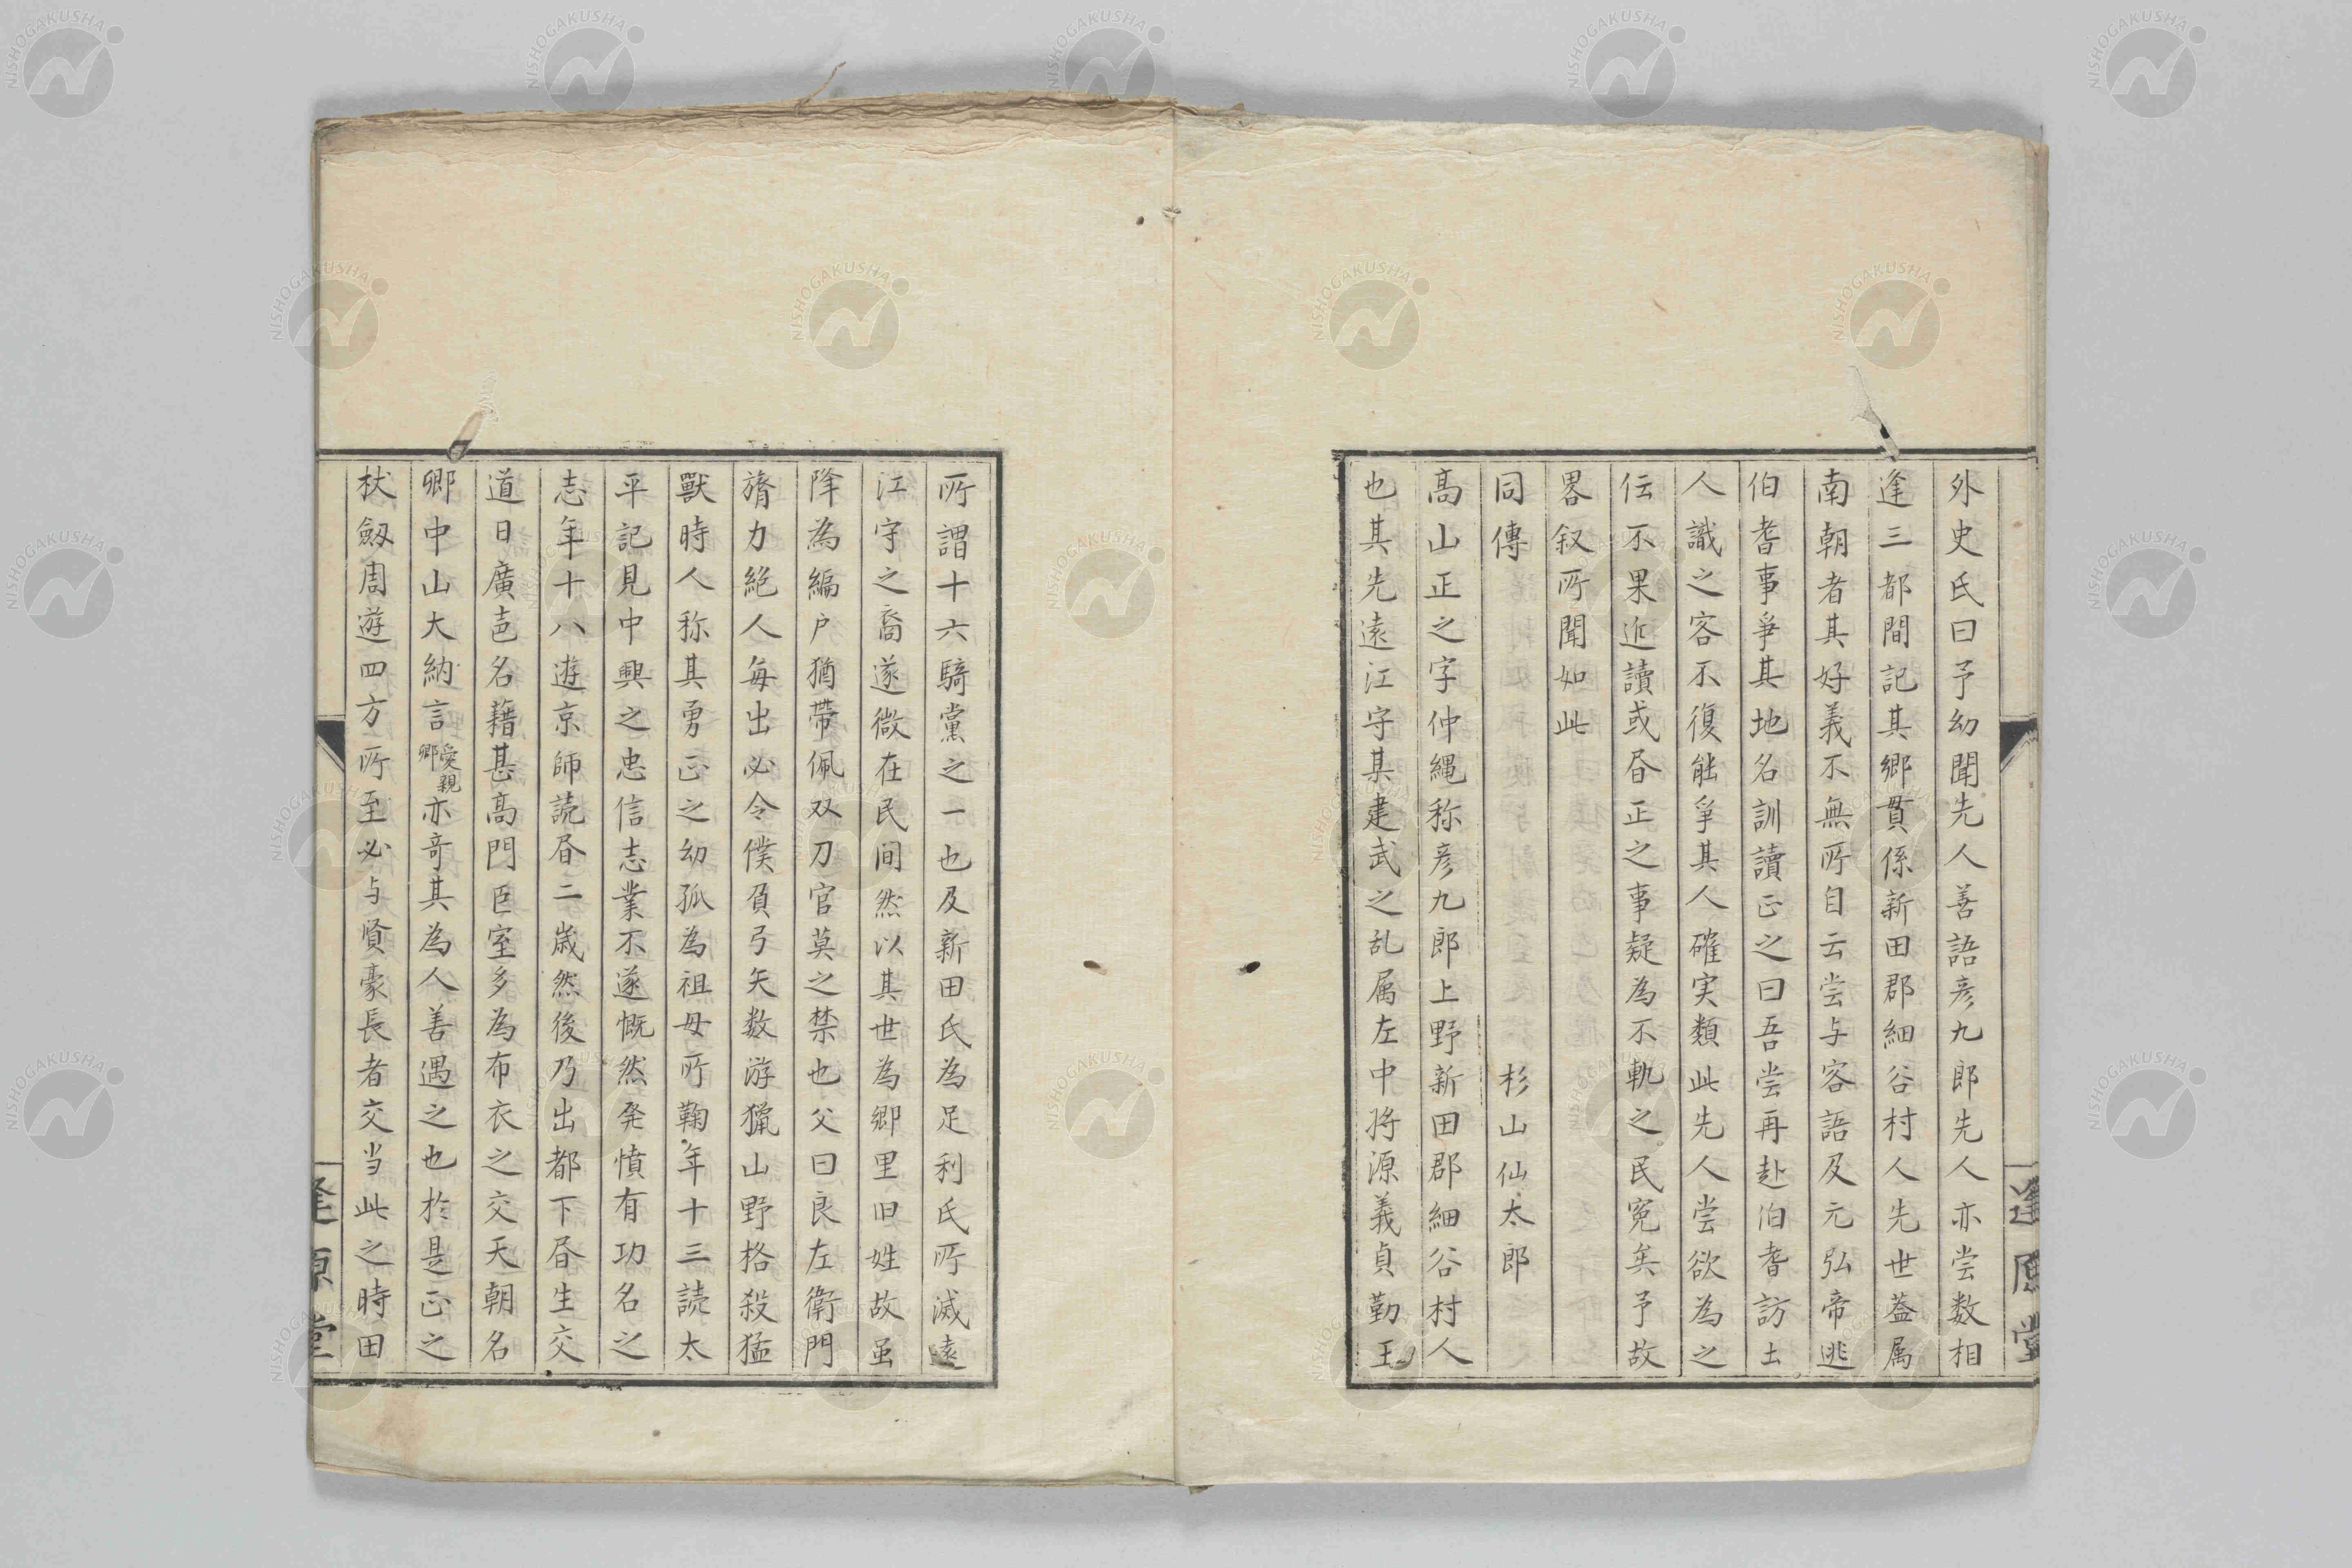 外史氏曰予幼聞先人善語彦九郎先人亦嘗数相
逢三都間記其郷貫係新田郡細谷村人先世蓋属
南朝者其好義不無所自云嘗与客語及元弘帝逃
伯耆事爭其地名訓讀正之曰吾嘗再赴伯耆訪土
人識之客不復能爭其人確実類此先人嘗欲為之
伝不果近讀或昏正之事疑為不軌之民冤矣予故
畧叙所聞如此
同傳 杉山仙太郎
高山正之字仲縄称彦九郎上野新田郡細谷村人
也其先遠江守某建武之乱属左中将源義貞勤王
所謂十六騎黨之一也及新田氏為足利氏所滅遠
江守之裔遂微在民间然以其世為郷里旧姓故虽
降為編戸猶帶佩双刀官莫之禁也父曰良左衛門
膂力絶人毎出必令僕負弓矢数游獵山野格殺猛
獸時人称其勇正之幼孤為祖母所鞠年十三読太
平記見中興之忠信志業不遂慨然発憤有功名之
志年十八遊京師読昏二歳然後乃出都下昏生交
道日廣声名藉甚高門臣室多為布衣之交天朝名
郷中山大納言愛親郷亦竒其為人善遇之也於是正之
杖劔周遊四方所至必与贤豪長者交当此之時田
逢原堂
逢原堂
NISHOGAKUSHA